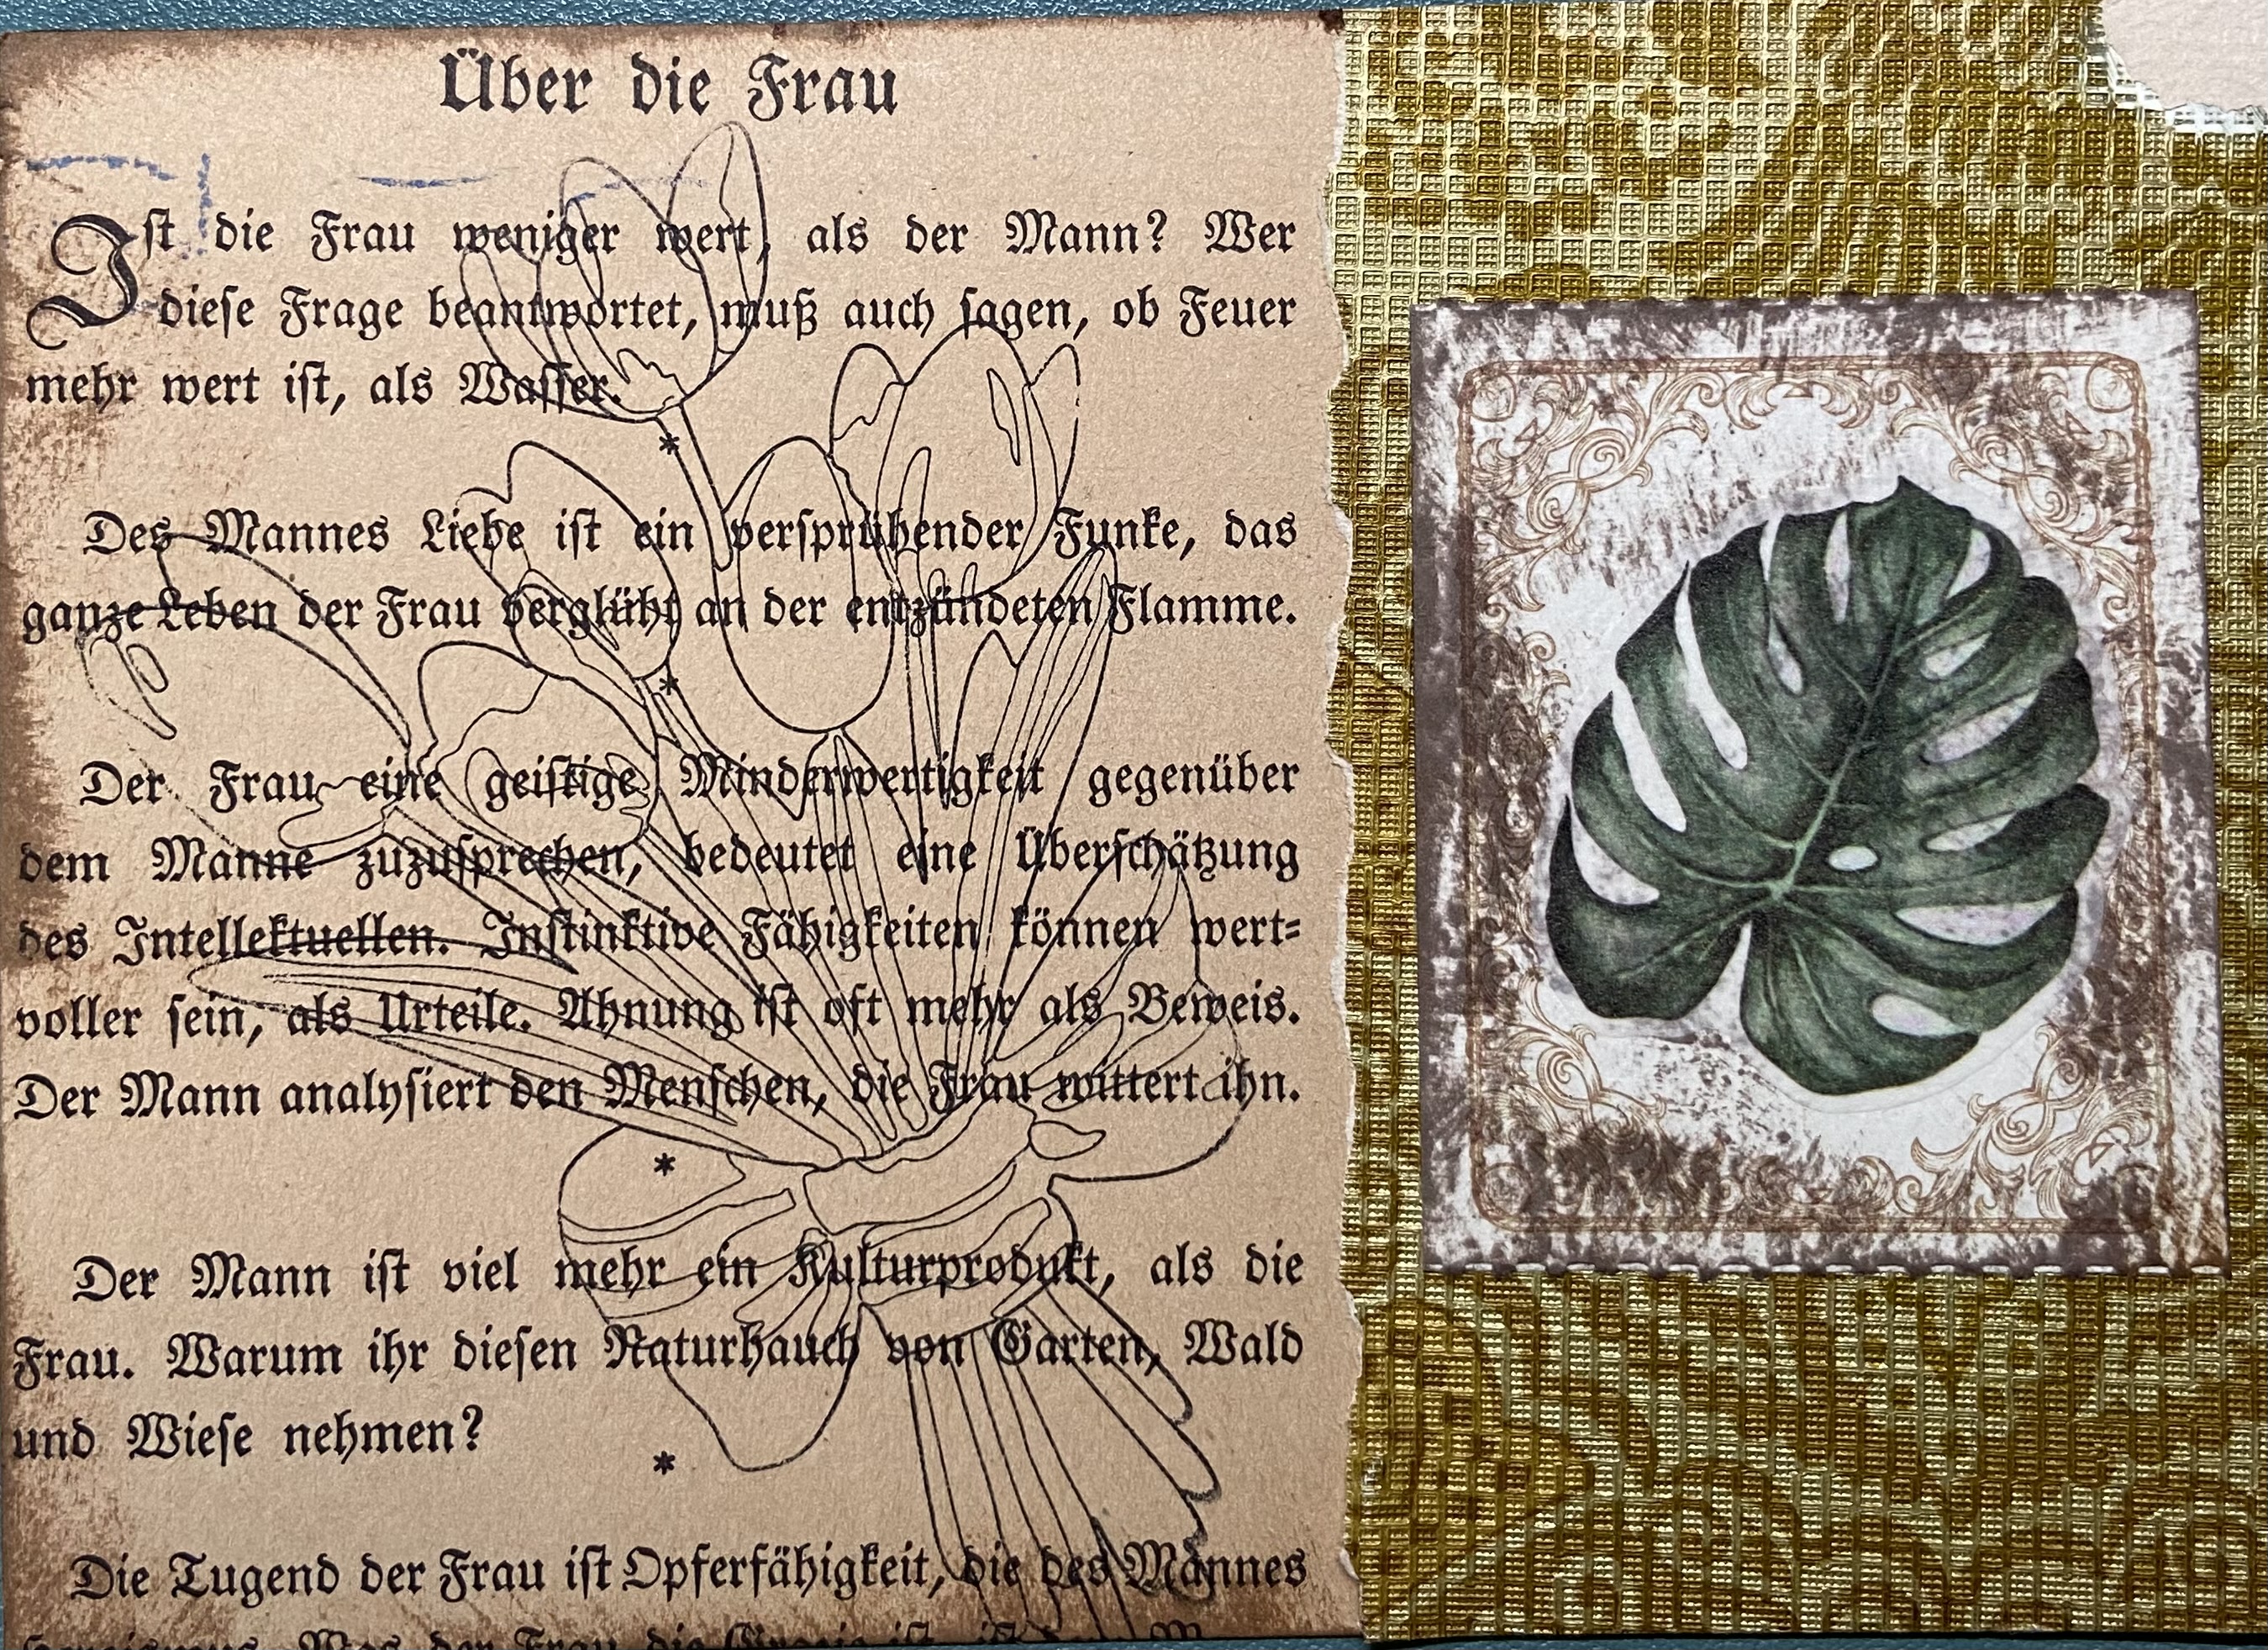 Über die Frau
Ist die Frau weniger wert, als der Mann? Wer
diese Frage beantwortet, muß auch sagen, ob Feuer
mehr wert ist, als Wasser.
*
Des Mannes Liebe ist ein versprühender Funke, das
ganze Leben der Frau verglüht an der entzündeten Flamme.
*
Der Frau eine geistige Minderwertigkeit gegenüber
dem Manne zuzusprechen, bedeutet eine Überschätzung
des Intellektuellen. Instinktive Fähigkeiten können wert-
voller sein, als Urteile. Ahnung ist oft mehr als Beweis.
Der Mann analysiert den Menschen, die Frau wittert ihn.
*
Der Mann ist viel mehr ein Kulturprodukt, als die
Frau. Warum ihr diesen Naturhauch von Garten, Wald
und Wiese nehmen?
*
Die Tugend der Frau ist Opferfähigkeit, die des Mannes
Was der Frau die Grazie ist, ist dem